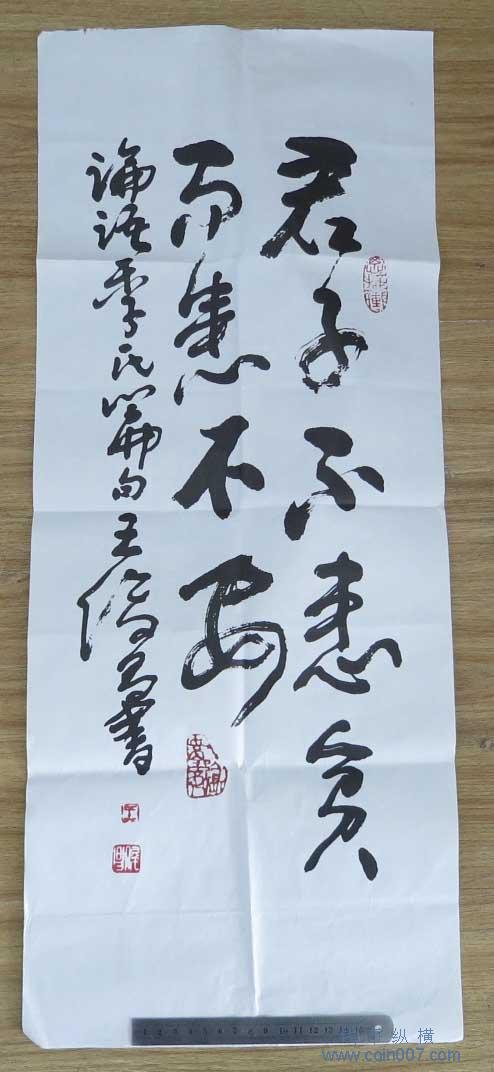 君子不患貧
而患不安
論語季氏篇句王書
1 2 3 4 5 6 7 8 9 10 11 12 13 14 15
纵横
www.coin007.com